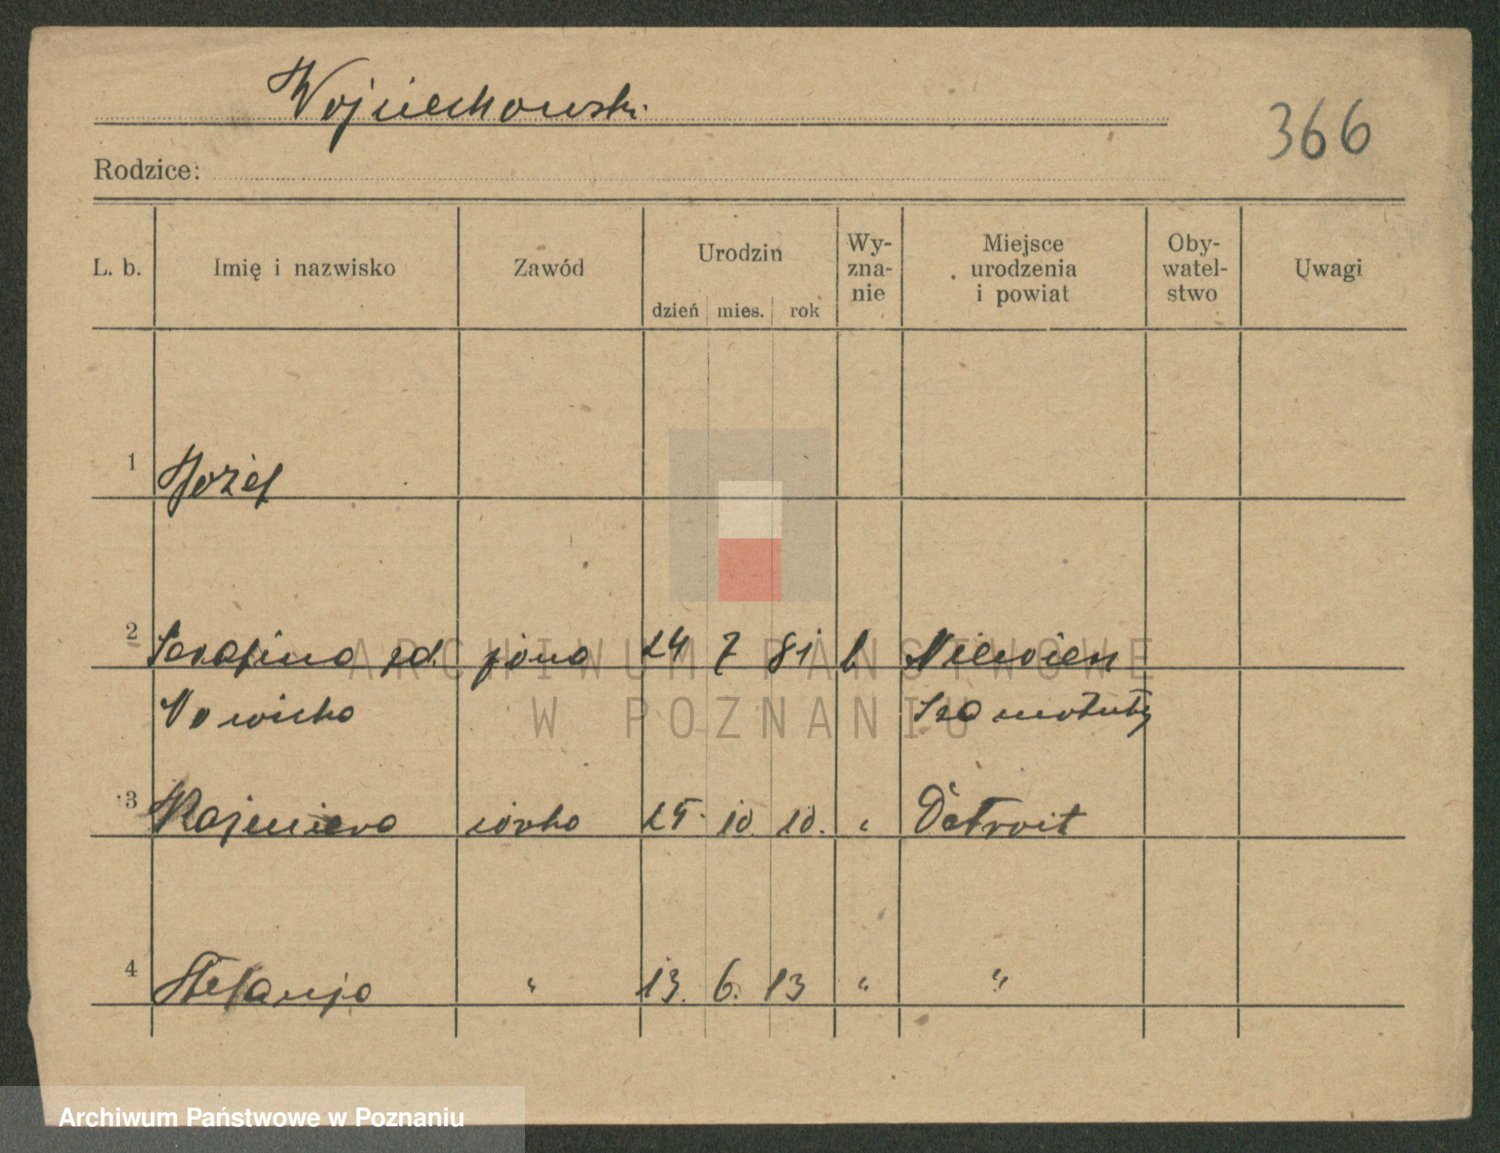 Wojciechowski
366
Rodzice:
L. b. Imię i nazwisko Zawód Urodzin dzień mies. rok Wy-zna-nie Miejsce urodzenia i powiat Oby-watel-stwo Uwagi
1 Józef
2 Serafina zd. żona 24 7 81 k Niewierz
Nowicka Szamotuły
3 Kazimiera córka 25. 10. 10. " Detroit
4 Stefanja " 13. 6. 13 " "
ARCHIWUM PAŃSTWOWE
W POZNANIU
Archiwum Państwowe w Poznaniu